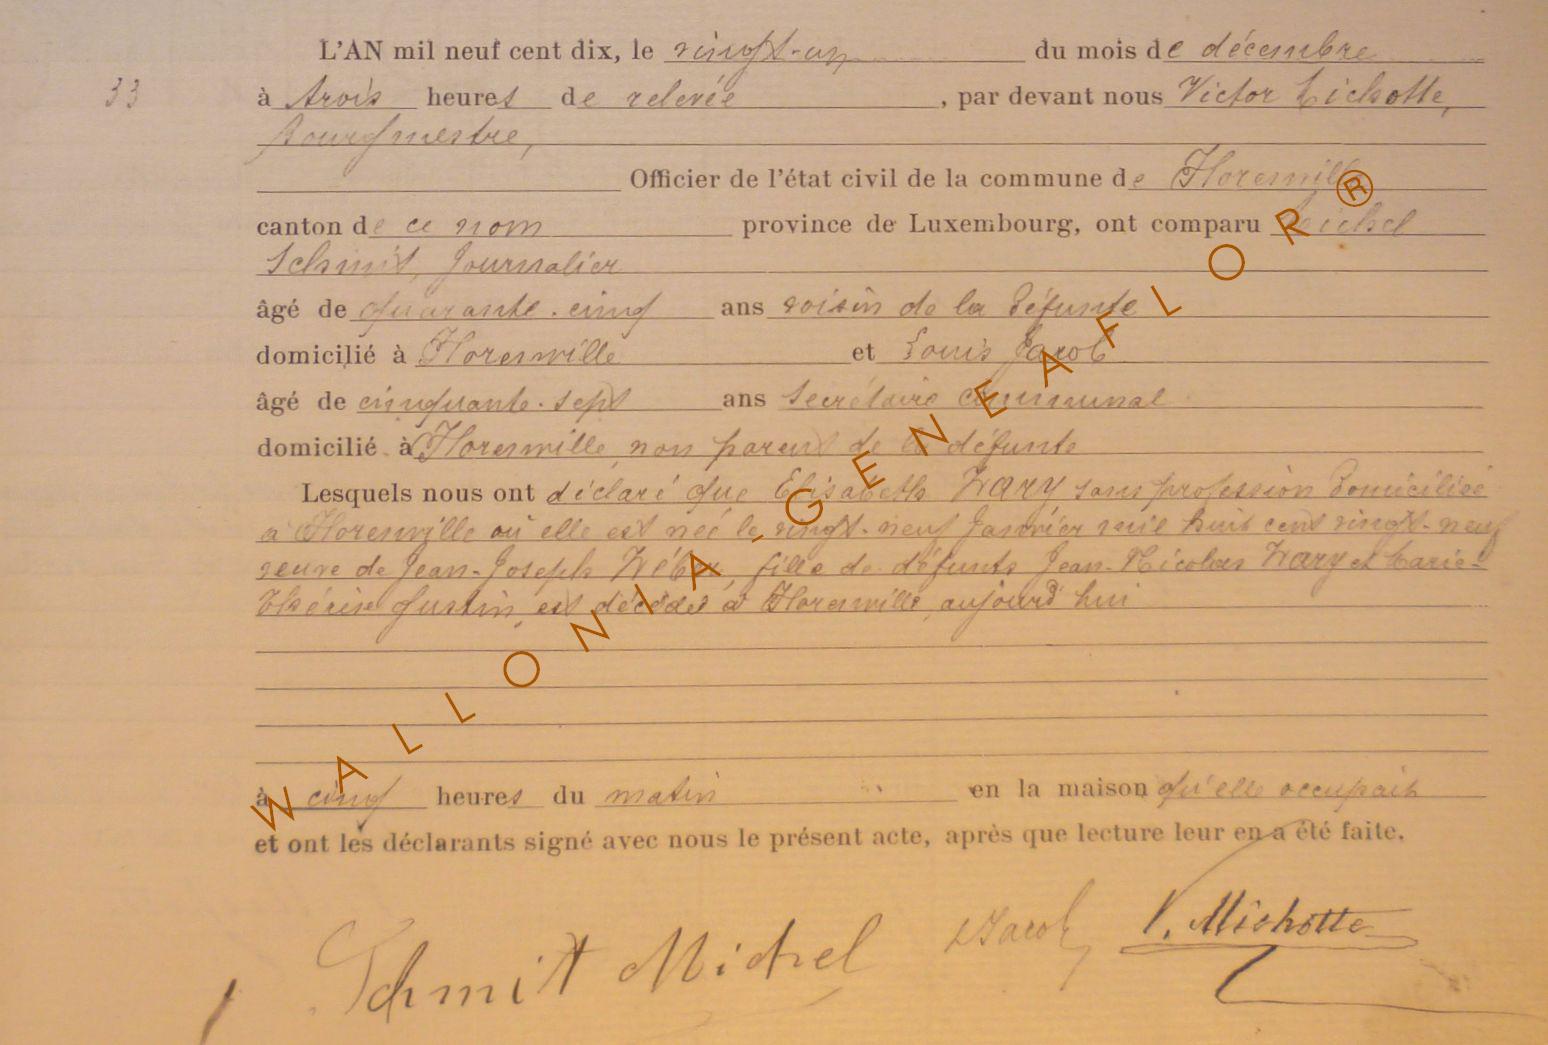 L'AN mil neuf cent dix, le vingt-un du mois de décembre
33
à trois heures de relevée, par devant nous Victor Michotte,
bourgmestre,
Officier de l'état civil de la commune de Florenville
canton de ce nom province de Luxembourg, ont comparu Michel
Schmit, journalier
âgé de quarante-cinq ans voisin de la défunte
domicilié à Florenville et Louis Jacob
âgé de cinquante-sept ans secrétaire communal
domicilié à Florenville, non parent de la défunte
Lesquels nous ont déclaré que Elisabeth WARY sans profession domiciliée
à Florenville où elle est née le vingt-neuf janvier mil huit cent vingt-neuf
veuve de Jean-Joseph Wéber, fille de défunts Jean-Nicolas Wary et Marie-
Thérèse Gustin, est décédée à Florenville, aujourd'hui
à cinq heures du matin en la maison qu'elle occupait
et ont les déclarants signé avec nous le présent acte, après que lecture leur en a été faite.
Schmit Michel LJacob V. Michotte
WALLONIA-GENEAFLOR®